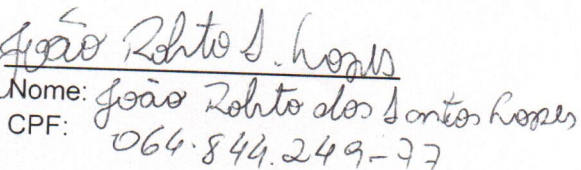 João Roberto S. Lopes
Nome: João Roberto dos Santos Lopes
CPF: 064.844.249-77